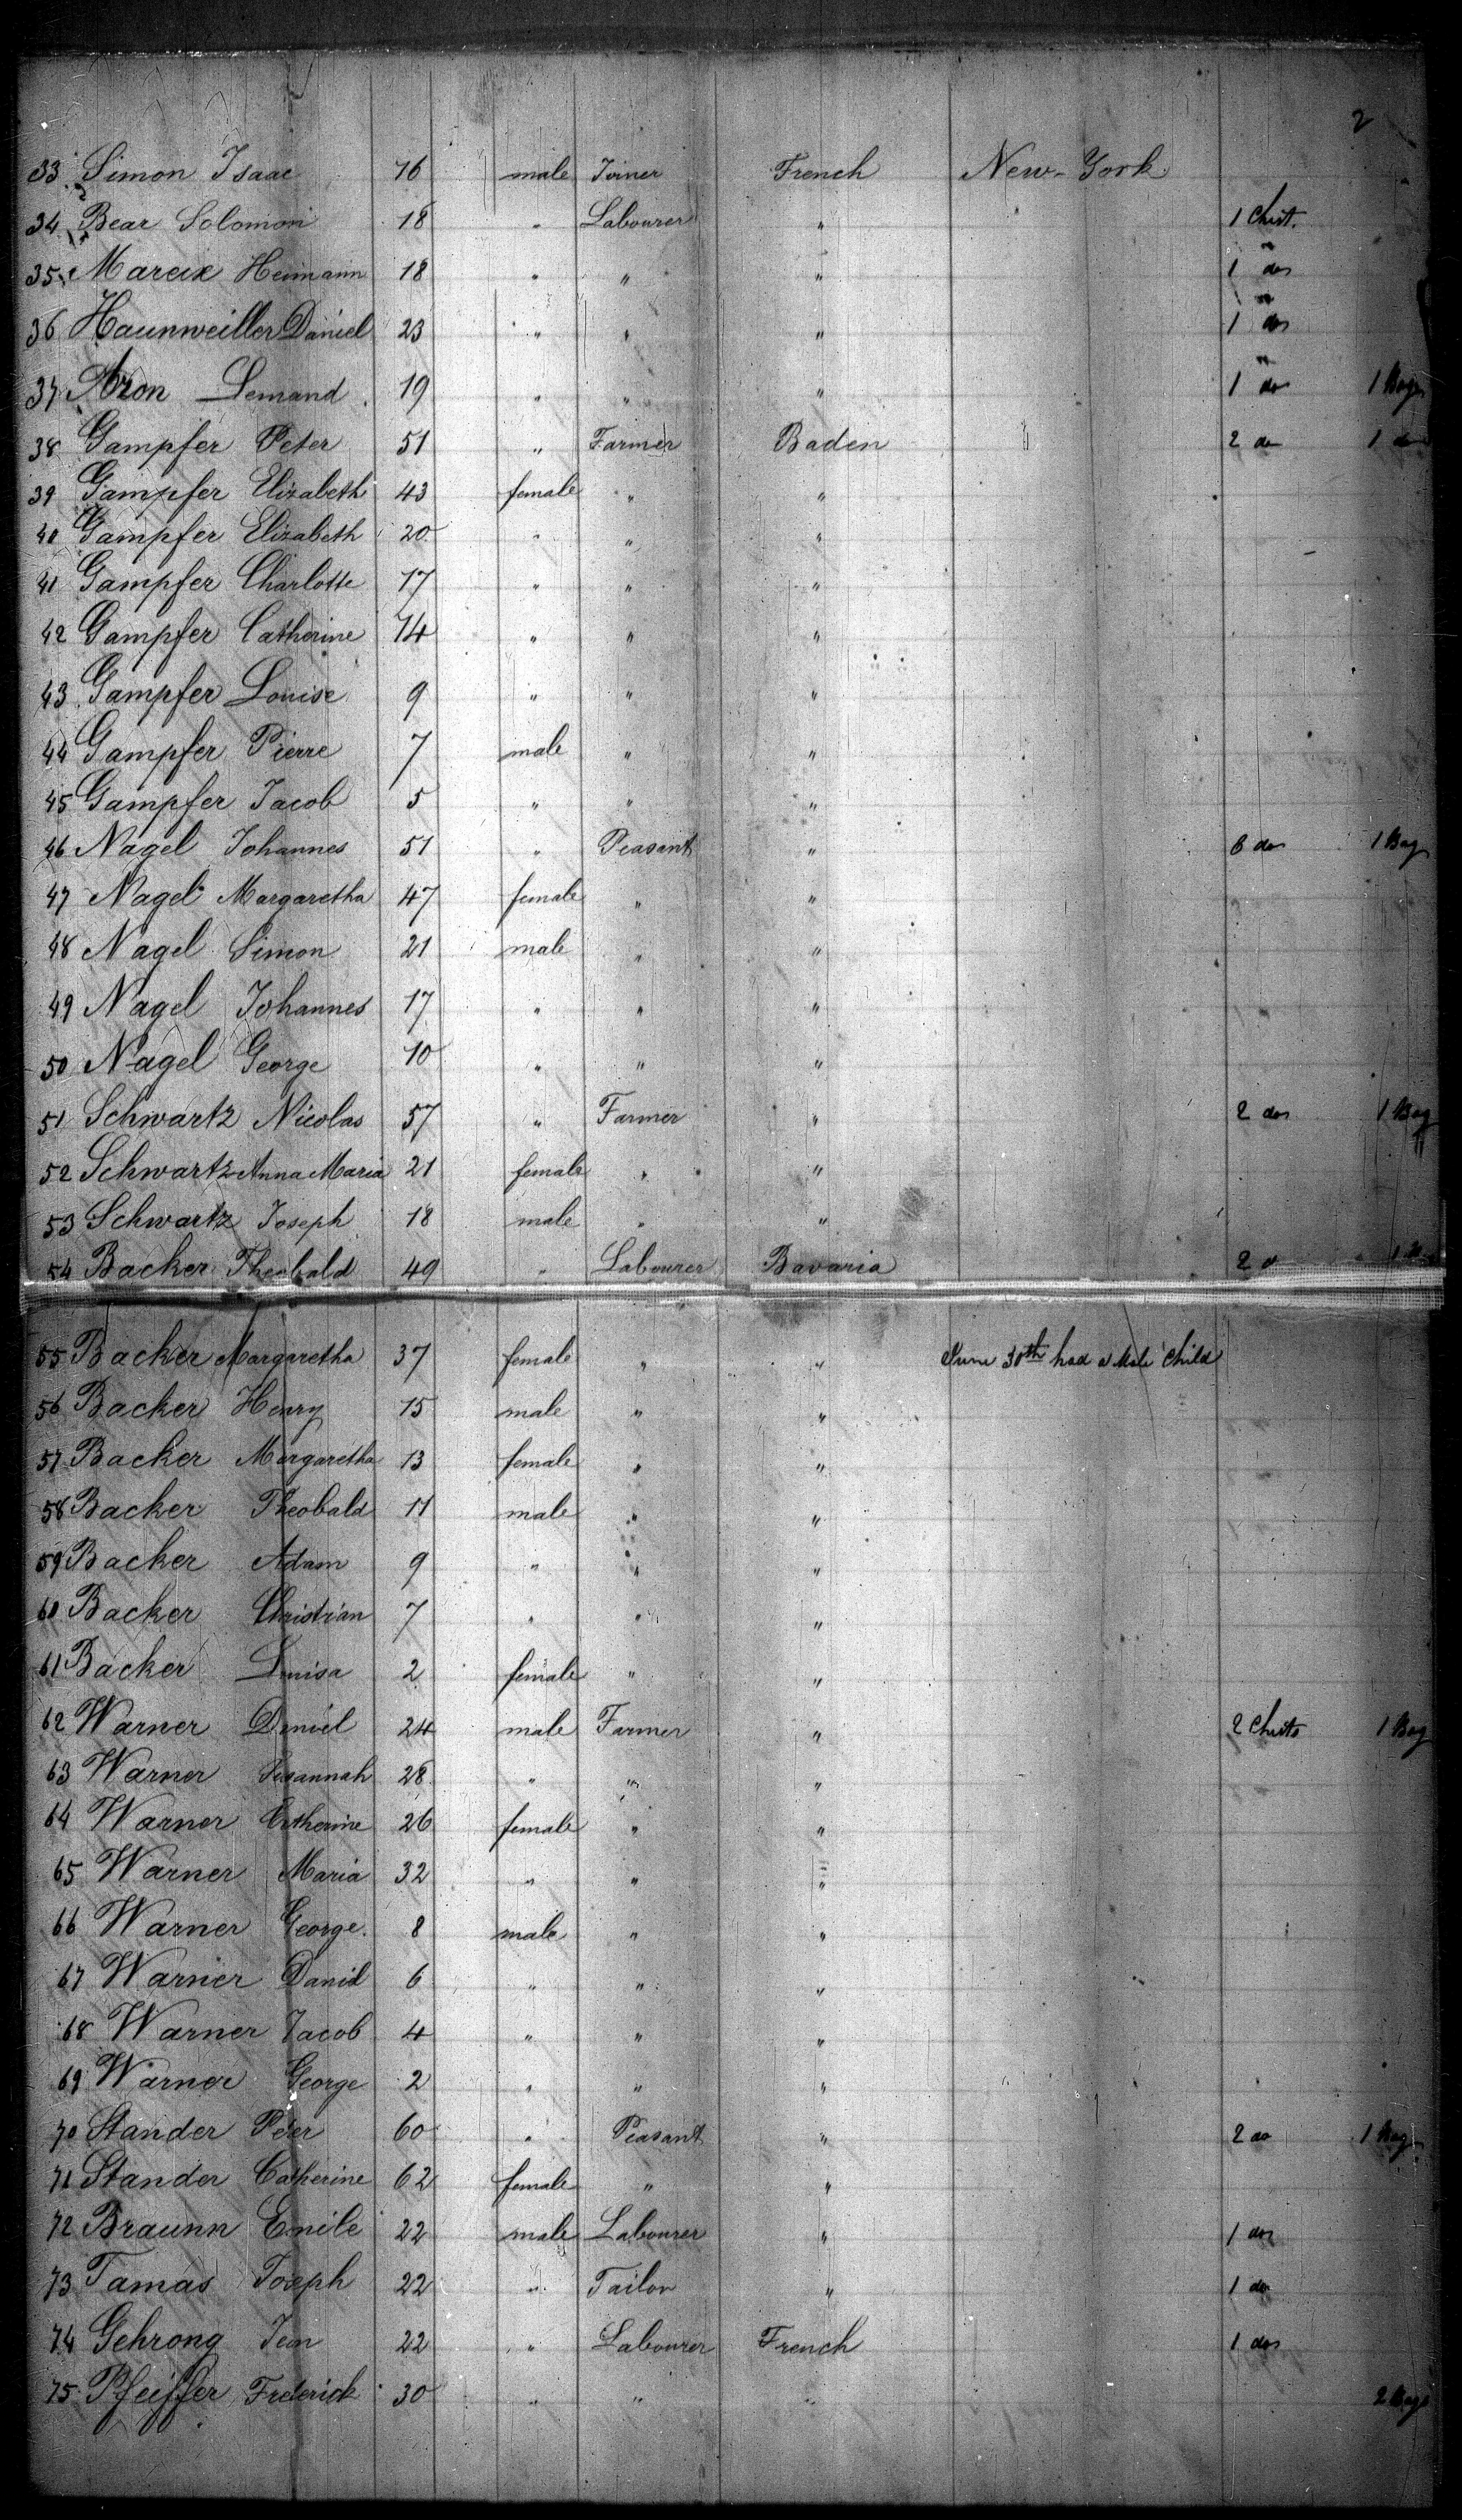 2
33 Simon Isaac 16 male Joiner French New-York
34 Bear Solomon 18 " Labourer " 1 Chest.
35 Marcix Heimann 18 " " " 1 do
36 Haunweiller Daniel 23 " " " 1 do
37 Aron Lemand 19 " " " 1 do 1 Bag
38 Gampfer Peter 51 " Farmer Baden 2 do 1 do
39 Gampfer Elizabeth 43 female " "
40 Gampfer Elizabeth 20 " " "
41 Gampfer Charlotte 17 " " "
42 Gampfer Catherine 14 " " "
43 Gampfer Louise 9 " " "
44 Gampfer Pierre 7 male " "
45 Gampfer Jacob 5 " " "
46 Nagel Johannes 51 " Peasant " 6 do 1 Bag
47 Nagel Margaretha 47 female " "
48 Nagel Simon 21 male " "
49 Nagel Johannes 17 " " "
50 Nagel George 10 " " "
51 Schwartz Nicolas 57 " Farmer " 2 do 1 Bag
52 Schwartz Anna Maria 21 female " "
53 Schwartz Joseph 18 male " "
54 Backer Theobald 49 " Labourer Bavaria 2 1
55 Backer Margaretha 37 female " " June 30th had a Male Child
56 Backer Henry 15 male " "
57 Backer Margaretha 13 female " "
58 Backer Theobald 11 male " "
59 Backer Adam 9 " " "
60 Backer Christian 7 " " "
61 Backer Louisa 2 female " "
62 Warner Daniel 24 male Farmer " 2 Chests 1 Bag
63 Warner Susannah 28 " " "
64 Warner Catherine 26 female " "
65 Warner Maria 32 " " "
66 Warner George. 8 male " "
67 Warner Daniel 6 " " "
68 Warner Jacob 4 " " "
69 Warner George 2 " " "
70 Stander Peter 60 " Peasant " 2 do 1 Bag
71 Stander Catherine 62 female " "
72 Braunn Emile 22 male Labourer " 1 do
73 Tamas Joseph 22 " Tailor " 1 do
74 Gehrong Jean 22 " Labourer French 1 do
75 Pfeiffer Frederick 30 " " " 2 Bags